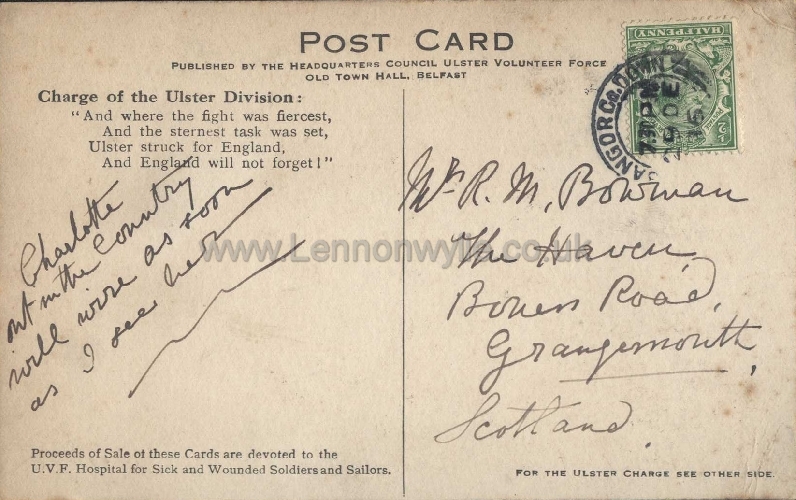 POST CARD
PUBLISHED BY THE HEADQUARTERS COUNCIL ULSTER VOLUNTEER FORCE
OLD TOWN HALL, BELFAST
Charge of the Ulster Division:
"And where the fight was fiercest,
And the sternest task was set,
Ulster struck for England,
And England will not forget!"
Charlotte
out in the Country
will wire as soon
as I see her
Proceeds of Sale of these Cards are devoted to the
U.V.F. Hospital for Sick and Wounded Soldiers and Sailors.
HALFPENNY
BANGOR Co. DOWN
7.30 PM
DE
Mr R. M. Bowman
The Haven,
Bowens Road,
Grangemouth,
Scotland.
FOR THE ULSTER CHARGE SEE OTHER SIDE.
www.Lennonwylie.co.uk